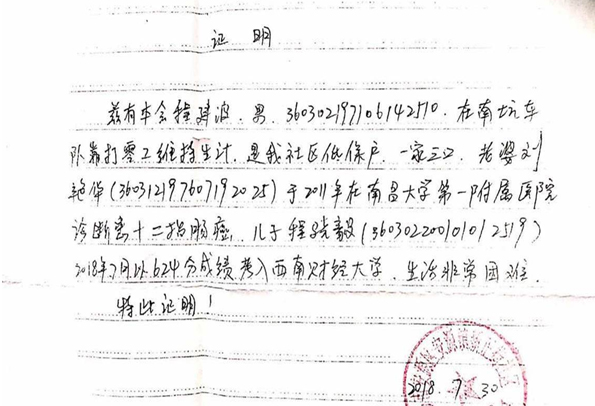 证 明
兹有本会程建波，男，360302197106142510，在南坑车
队靠打零工维持生计，是我社区低保户，一家三口，老婆刘
艳华(360312197607192025)于2011年在南昌大学第一附属医院
诊断患十二指肠癌，儿子程毅(360302200101012519)
2018年7月以624分成绩考入西南财经大学，生活非常困难．
特此证明！
2018.7.30